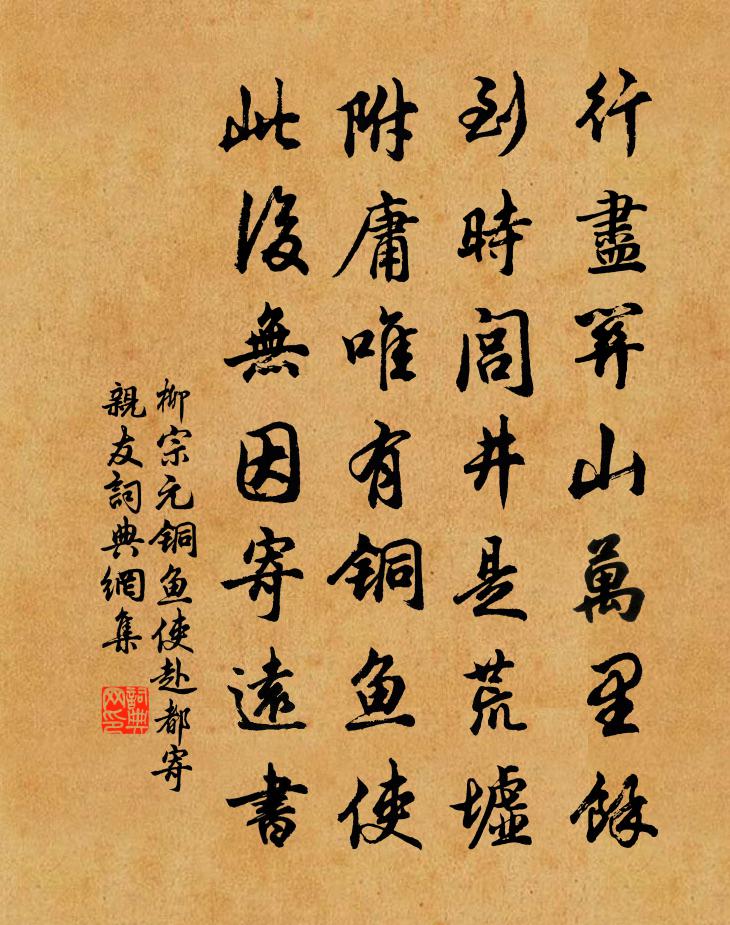 行盡關山萬里餘
到時閭井是荒墟
附庸唯有铜鱼使
此後無因寄遠書
柳宗元铜鱼使赴都寄
親友詞典網集
詞典网印